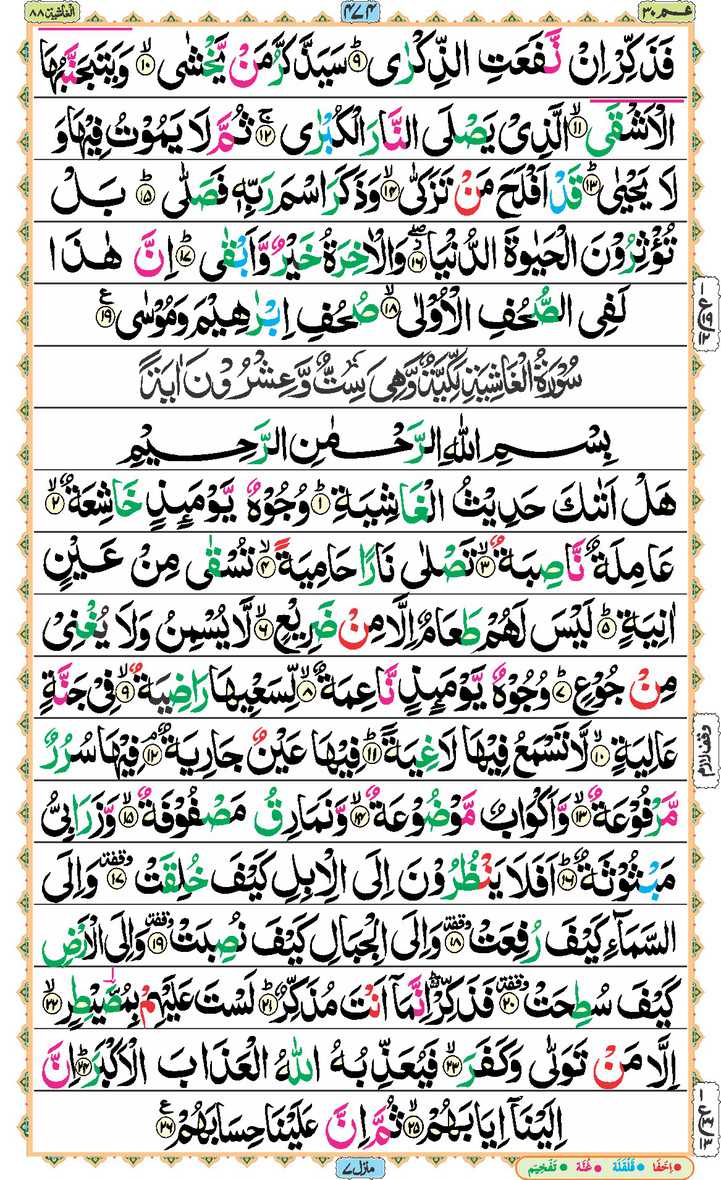 عـم ٣٠ ٤٧٤ الغاشية ٨٨
فَذَكِّرۡ اِنۡ نَّفَعَتِ الذِّكۡرٰىؕ‏ ﴿۹﴾ سَيَذَّكَّرُ مَنۡ يَّخۡشٰىۙ‏ ﴿۱۰﴾ وَيَتَجَنَّبُهَا
الۡاَشۡقَىۙ‏ ﴿۱۱﴾ الَّذِىۡ يَصۡلَى النَّارَ الۡكُبۡرٰى‌ۚ‏ ﴿۱۲﴾ ثُمَّ لَا يَمُوۡتُ فِيۡهَا وَ
لَا يَحۡيٰىؕ‏ ﴿۱۳﴾ قَدۡ اَفۡلَحَ مَنۡ تَزَكّٰىۙ‏ ﴿۱۴﴾ وَذَكَرَ اسۡمَ رَبِّهٖ فَصَلّٰى‌ؕ‏ ﴿۱۵﴾ بَلۡ
تُؤۡثِرُوۡنَ الۡحَيٰوةَ الدُّنۡيَاۖ‏ ﴿۱۶﴾ وَالۡاٰخِرَةُ خَيۡرٌ وَّاَبۡقٰىؕ‏ ﴿۱۷﴾ اِنَّ هٰذَا
لَفِى الصُّحُفِ الۡاُوۡلٰىۙ‏ ﴿۱۸﴾ صُحُفِ اِبۡرٰهِيۡمَ وَمُوۡسٰى‏ ﴿۱۹﴾ ع
سُوۡرَةُ الۡغَاشِيَةِ مَكِّيَّةٌ وَّهِىَ سِتٌّ وَّعِشۡرُوۡنَ اٰيَةً
بِسۡمِ اللهِ الرَّحۡمٰنِ الرَّحِيۡمِ
هَلۡ اَتٰٮكَ حَدِيۡثُ الۡغَاشِيَةِؕ‏ ﴿۱﴾ وُجُوۡهٌ يَّوۡمَٮِٕذٍ خَاشِعَةٌ ۙ‏ ﴿۲﴾
عَامِلَةٌ نَّاصِبَةٌ ۙ‏ ﴿۳﴾ تَصۡلٰى نَارًا حَامِيَةً ۙ‏ ﴿۴﴾ تُسۡقٰى مِنۡ عَيۡنٍ
اٰنِيَةٍؕ‏ ﴿۵﴾ لَيۡسَ لَهُمۡ طَعَامٌ اِلَّا مِنۡ ضَرِيۡعٍۙ‏ ﴿۶﴾ لَّا يُسۡمِنُ وَلَا يُغۡنِىۡ
مِنۡ جُوۡعٍؕ‏ ﴿۷﴾ وُجُوۡهٌ يَّوۡمَٮِٕذٍ نَّاعِمَةٌ ۙ‏ ﴿۸﴾ لِّسَعۡيِهَا رَاضِيَةٌ ۙ‏ ﴿۹﴾ فِىۡ جَنَّةٍ
عَالِيَةٍۙ‏ ﴿۱۰﴾ لَّا تَسۡمَعُ فِيۡهَا لَاغِيَةً ؕ‏ ﴿۱۱﴾ فِيۡهَا عَيۡنٌ جَارِيَةٌ‌ ۘ‏ ﴿۱۲﴾ فِيۡهَا سُرُرٌ
مَّرۡفُوۡعَةٌ ۙ‏ ﴿۱۳﴾ وَّاَكۡوَابٌ مَّوۡضُوۡعَةٌ ۙ‏ ﴿۱۴﴾ وَّنَمَارِقُ مَصۡفُوۡفَةٌ ۙ‏ ﴿۱۵﴾ وَّزَرَابِىُّ
مَبۡثُوۡثَةٌ ؕ‏ ﴿۱۶﴾ اَفَلَا يَنۡظُرُوۡنَ اِلَى الۡاِبِلِ كَيۡفَ خُلِقَتۡ وقفة ﴿۱۷﴾ وَاِلَى
السَّمَآءِ كَيۡفَ رُفِعَتۡ وقفة ﴿۱۸﴾ وَاِلَى الۡجِبَالِ كَيۡفَ نُصِبَتۡ وقفة ﴿۱۹﴾ وَاِلَى الۡاَرۡضِ
كَيۡفَ سُطِحَتۡ وقفة ﴿۲۰﴾ فَذَكِّرۡ اِنَّمَاۤ اَنۡتَ مُذَكِّرٌ ؕ‏ ﴿۲۱﴾ لَسۡتَ عَلَيۡهِمۡ بِمُصَۜيۡطِرٍۙ‏ ﴿۲۲﴾
اِلَّا مَنۡ تَوَلّٰى وَكَفَرَۙ‏ ﴿۲۳﴾ فَيُعَذِّبُهُ اللّٰهُ الۡعَذَابَ الۡاَكۡبَرَؕ‏ ﴿۲۴﴾ اِنَّ
اِلَيۡنَاۤ اِيَابَهُمۡۙ‏ ﴿۲۵﴾ ثُمَّ اِنَّ عَلَيۡنَا حِسَابَهُمۡ‏ ﴿۲۶﴾ ع
وقف لازم
منزل ٧
اِخفَا قَلقَلَة غُنَّة تَفْخِيم